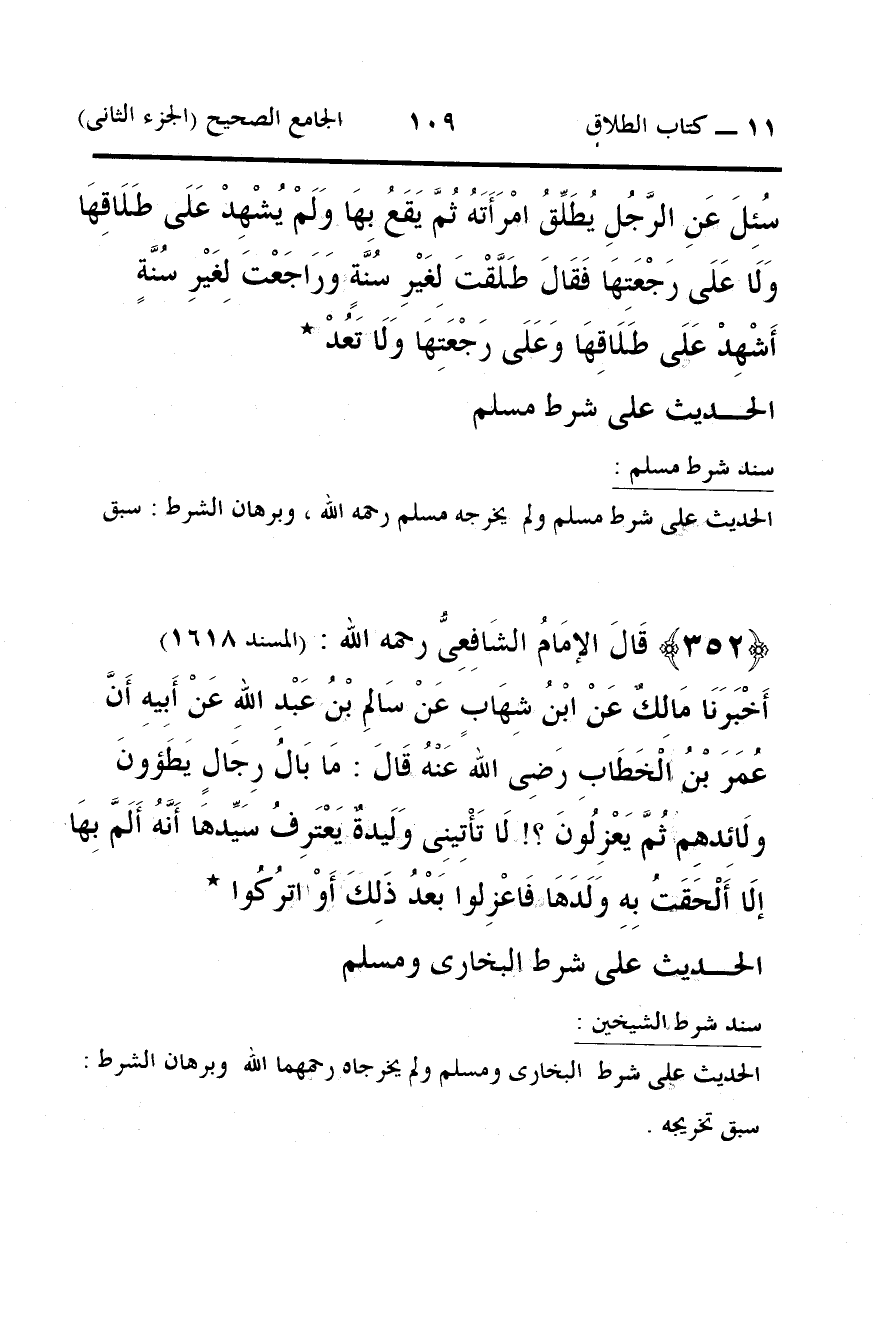 ١١ ــ كتاب الطلاق ١٠٩ الجامع الصحيح (الجزء الثانى)
سُئِلَ عَنِ الرَّجُلِ يُطَلِّقُ امْرَأَتَهُ ثُمَّ يَقَعُ بِهَا وَلَمْ يُشْهِدْ عَلَى طَلَاقِهَا
وَلَا عَلَى رَجْعَتِهَا فَقَالَ طَلَّقْتَ لِغَيْرِ سُنَّةٍ وَرَاجَعْتَ لِغَيْرِ سُنَّةٍ
أَشْهِدْ عَلَى طَلَاقِهَا وَعَلَى رَجْعَتِهَا وَلَا تَعُدْ ★
الحــديث على شرط مسلم
سند شرط مسلم :
الحديث على شرط مسلم ولم يخرجه مسلم رحمه الله ، وبرهان الشرط : سبق
﴿٣٥٢﴾ قَالَ الإِمَامُ الشَافِعِىُّ رحمه الله : (المسند ١٦١٨)
أَخْبَرَنَا مَالِكٌ عَنْ ابْنُ شِهَابٍ عَنْ سَالِمِ بْنُ عَبْدِ اللهِ عَنْ أَبِيهِ أَنَّ
عُمَرَ بْنُ الْخَطَابِ رَضِى الله عَنْهُ قَالَ : مَا بَالُ رِجَالٍ يَطَؤونَ
ولَائِدهِم ثُمَّ يَعْزِلُونَ ؟! لَا تَأْتِينِى وَلِيدةٌ يَعْتَرِفُ سَيِّدهَا أَنَّهُ أَلَمَّ بِهَا
إلَا أَلْحَقَتُ بِهِ وَلَدَهَا فَاعْزِلوا بَعْدُ ذَلِكَ أَوْ اترُكُوا ★
الحــديث على شرط البخارى ومسلم
سند شرط الشيخين :
الحديث على شرط البخارى ومسلم ولم يخرجاه رحمهما الله وبرهان الشرط :
سبق تخريجه .